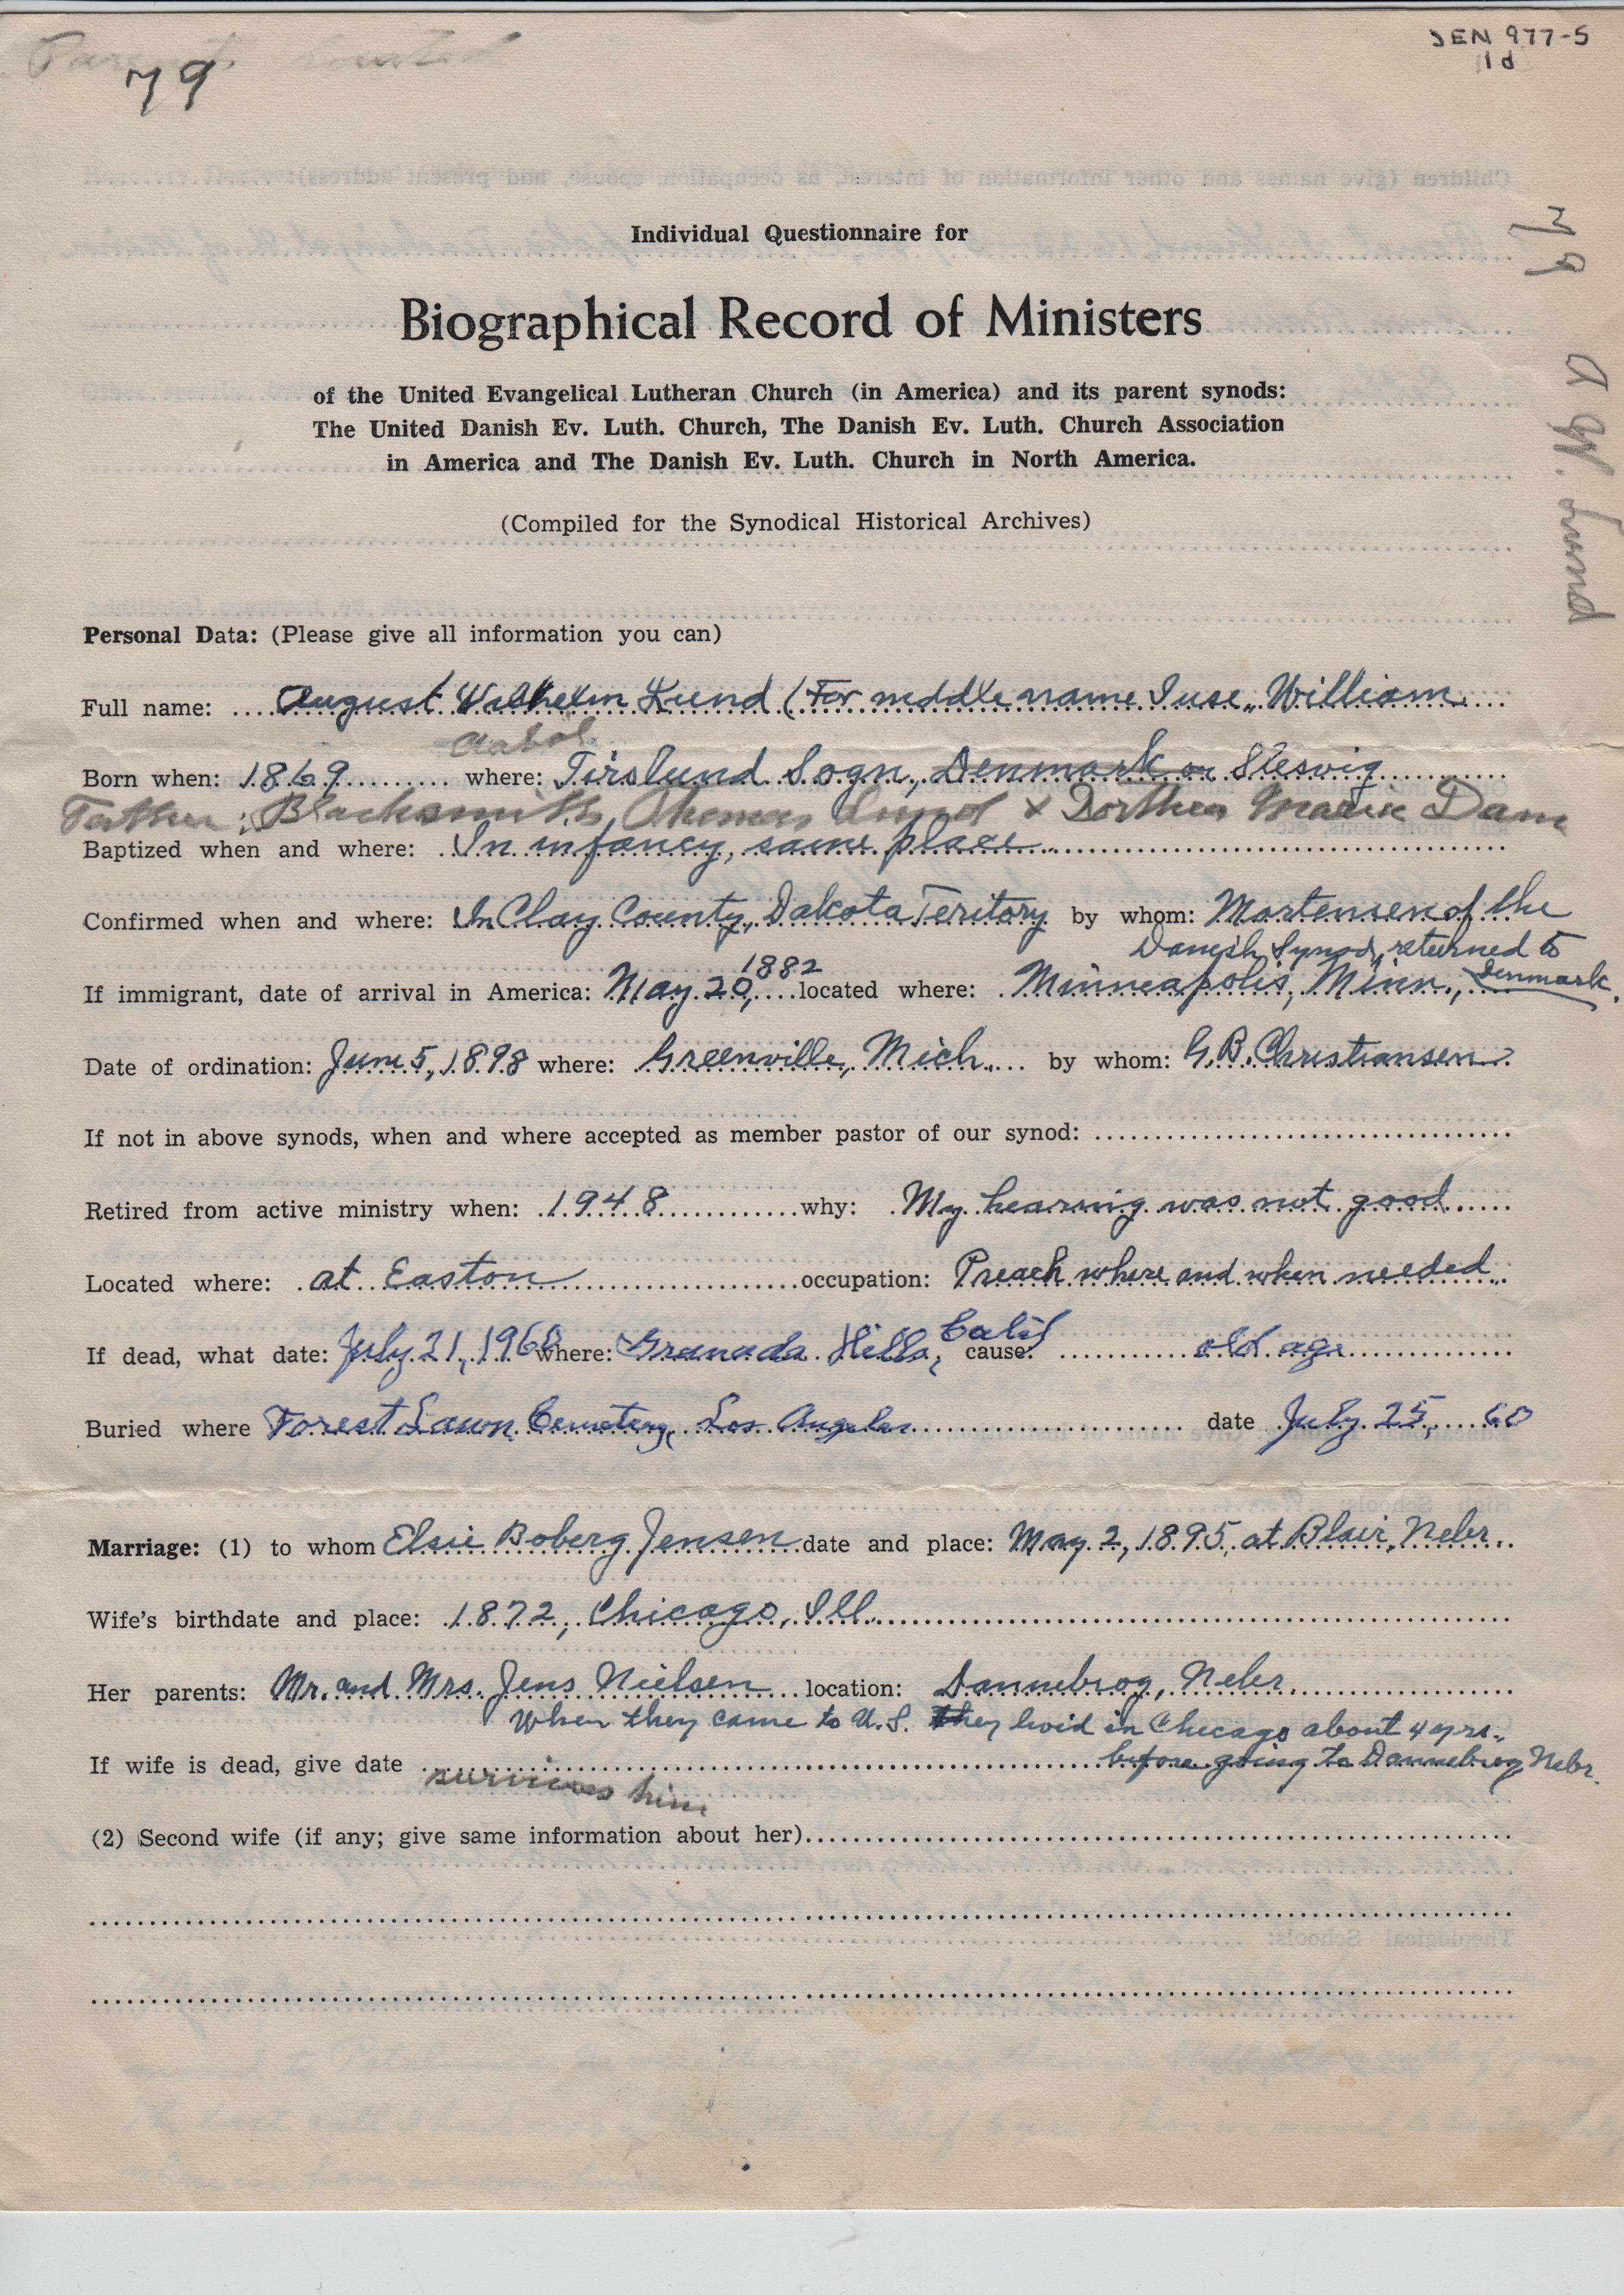 JEN 977-5
1d
79
79 A W. Lund
Individual Questionnaire for
Biographical Record of Ministers
of the United Evangelical Lutheran Church (in America) and its parent synods:
The United Danish Ev. Luth. Church, The Danish Ev. Luth. Church Association
in America and The Danish Ev. Luth. Church in North America.
(Compiled for the Synodical Historical Archives)
Personal Data: (Please give all information you can)
Full name: August Wilhelm Lund (For mddle name I use, William
Aabøl
Born when: 1869 where: Tirslund Sogn, Denmark or Slesvig
Father: Blacksmith Thomas Lund & Dorthea Marie Dam
Baptized when and where: In infancy, same place
Confirmed when and where: In Clay County, Dakota Teritory by whom: Mortensen of the
Danish Synod, returned to
If immigrant, date of arrival in America: May 20, 1882 located where: Minneapolis, Minn., Denmark.
Date of ordination: June 5, 1898 where: Greenville, Mich. by whom: G.B. Christiansen
If not in above synods, when and where accepted as member pastor of our synod:
Retired from active ministry when: 1948 why: My hearing was not good
Located where: at Easton occupation: Preach where and when needed
If dead, what date: July 21, 1960 where: Granada Hills, Calif cause: old age
Buried where Forest Lawn Cemetery, Los Angeles date July 25, 60
Marriage: (1) to whom Elsie Boberg Jensen date and place: May 2, 1895, at Blair, Nebr.
Wife's birthdate and place: 1872, Chicago, Ill.
Her parents: Mr. and Mrs. Jens Nielsen location: Dannebrog, Nebr.
When they came to U.S. they livid in Chicago about 4 yrs.,
If wife is dead, give date before going to Dannebrog Nebr.
survives him
(2) Second wife (if any; give same information about her)